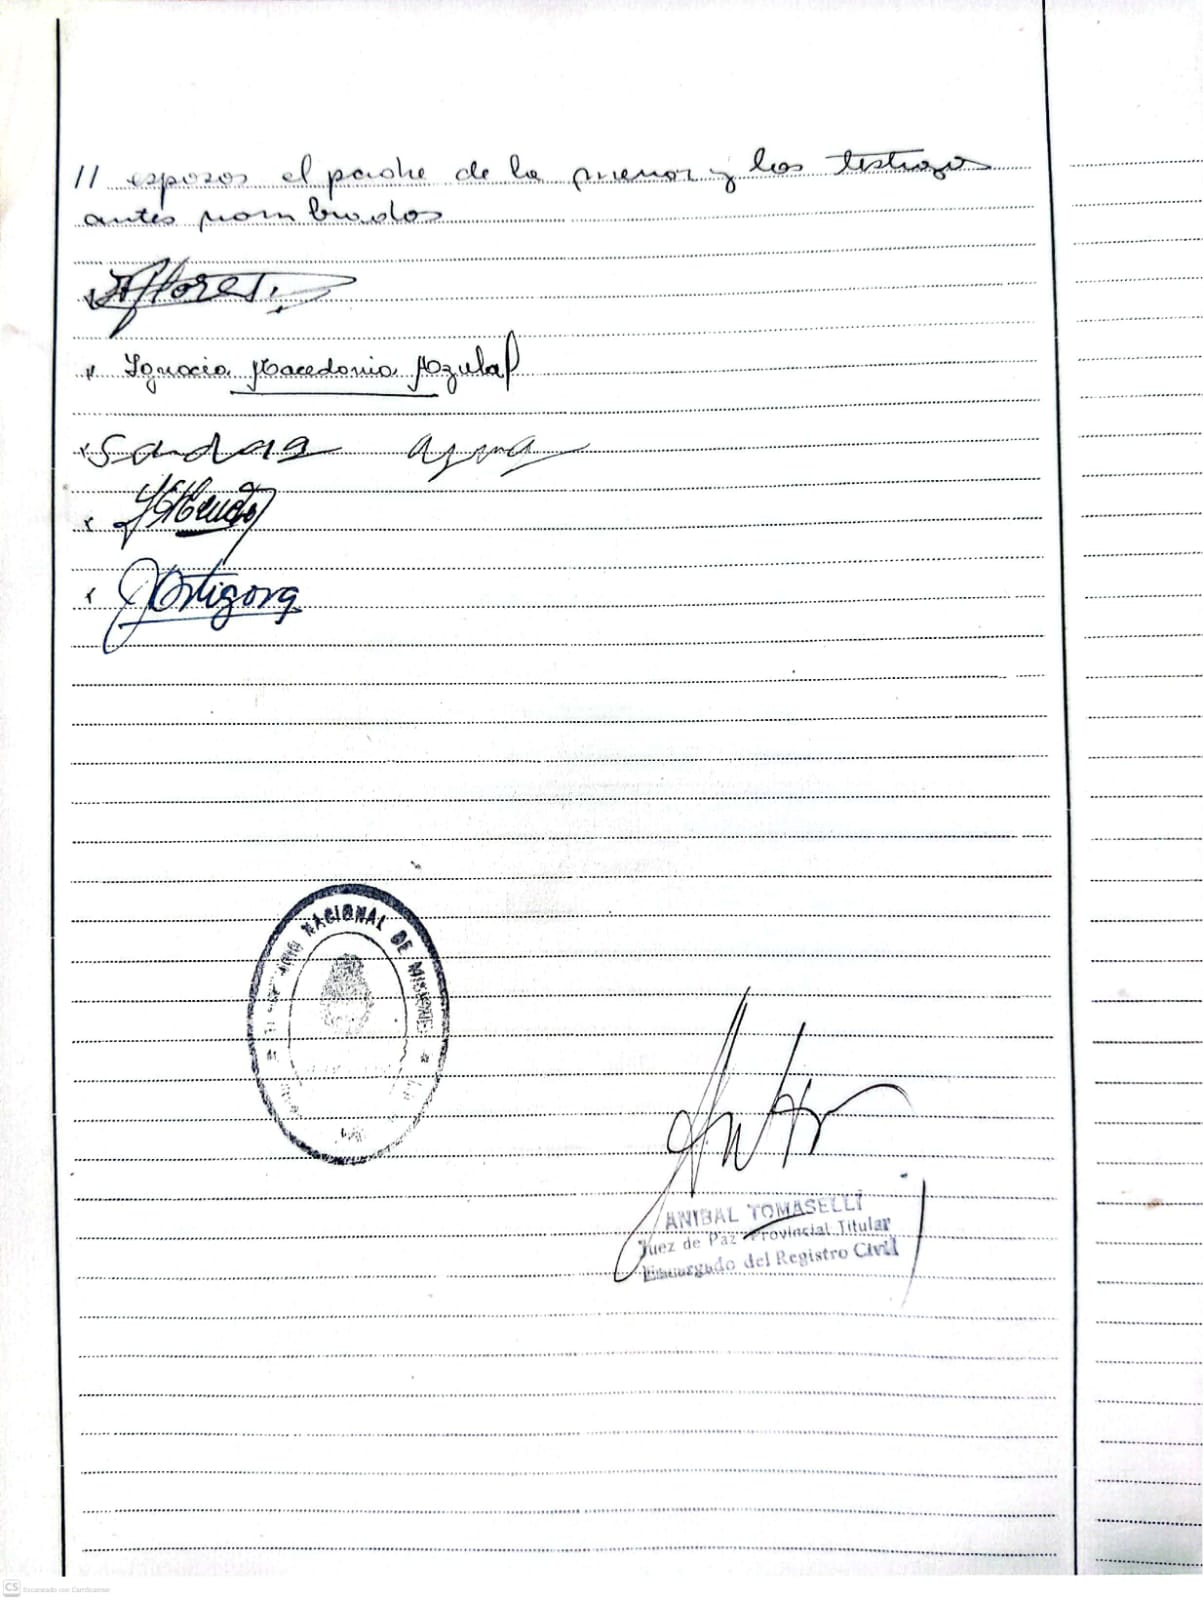 // esposos el padre de la menor y los testigos
antes nombrados
Flores
Ignacia Macedonia Azula
J Ortigoza
NACIONAL DE MISIONES
ANIBAL TOMASELLI
Juez de Paz Provincial Titular
Encargado del Registro Civil
CS Escaneado con CamScanner